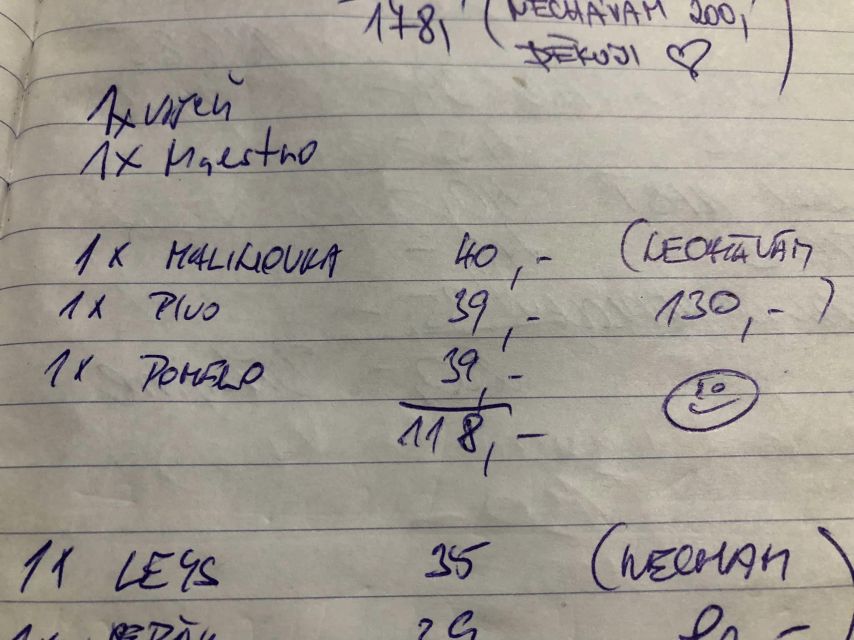 178,- (NECHÁVÁM 200,-
DĚKUJI ♡)
1x
1x Maestro
1x MALINOVKA 40,- (NECHÁVÁM
1x PIVO 39,- 130,-)
1x POMELO 39,-
118,-
1x LEYS 35 (NECHÁM)
1x 39